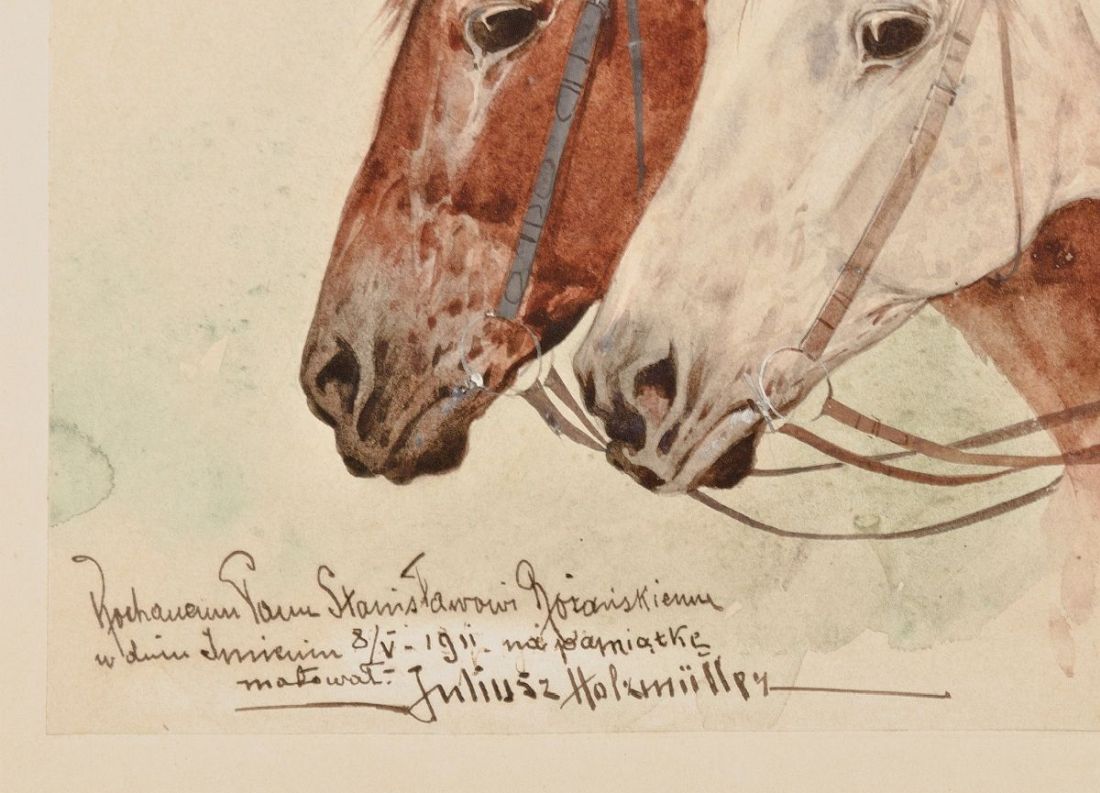 Kochanemu Panu Stanisławowi Bożańskiemu
w dniu Imienin 8/V - 1911 - na pamiątkę
malował: Juliusz Holzmüller